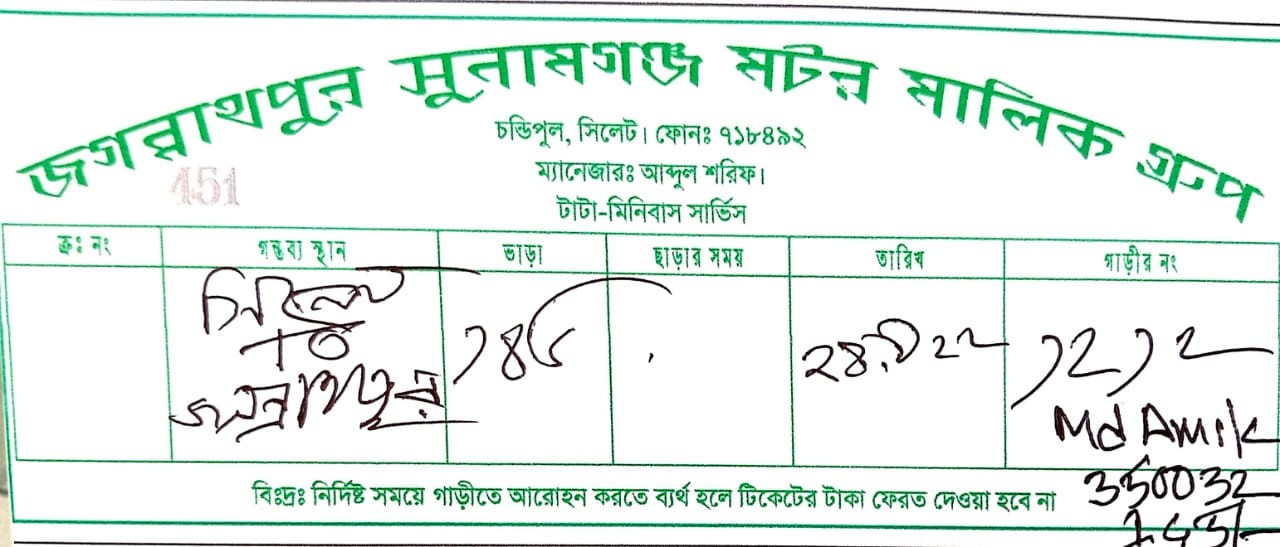 জগন্নাথপুর সুনামগঞ্জ মটর মালিক গ্রুপ
চন্ডিপুল, সিলেট। ফোনঃ ৭১৮৪৯২
ম্যানেজারঃ আব্দুল শরিফ।
451
টাটা-মিনিবাস সার্ভিস
ক্রঃ নং গন্তব্য স্থান ভাড়া ছাড়ার সময় তারিখ গাড়ীর নং
সিলেট
TO
জগন্নাথপুর
Md Amik
350032
বিঃদ্রঃ নির্দিষ্ট সময়ে গাড়ীতে আরোহন করতে ব্যর্থ হলে টিকেটের টাকা ফেরত দেওয়া হবে না